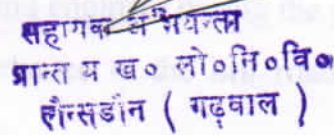 सहायक अभियन्ता
प्रान्तीय ख० लो०नि०वि०
लैन्सडौन ( गढ़वाल )